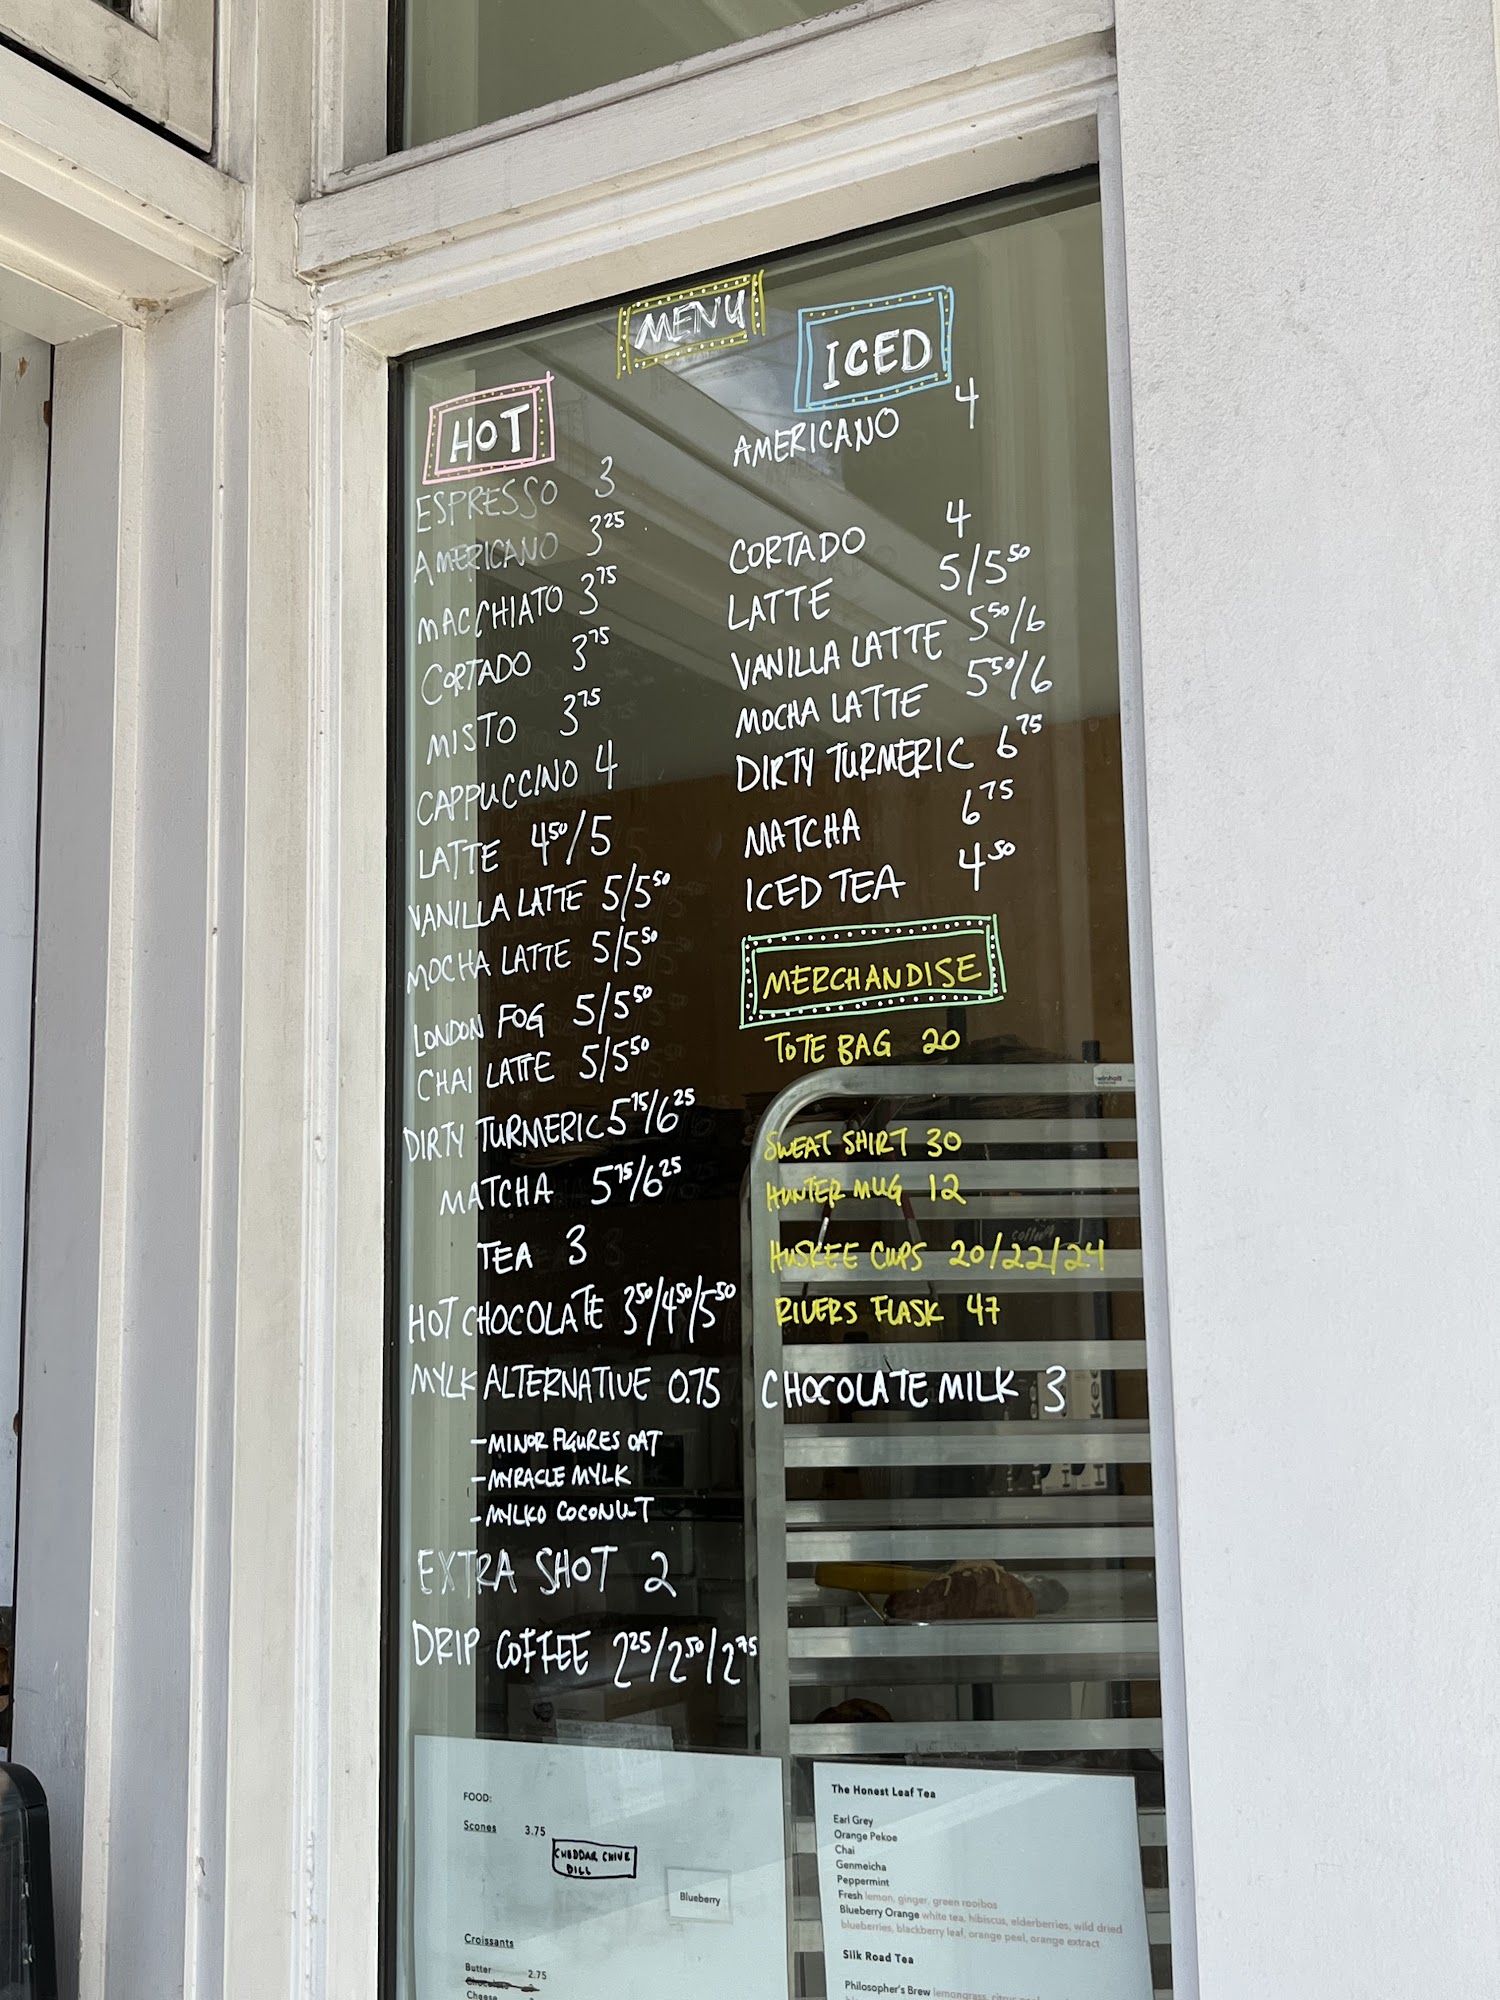 MENU
HOT
ESPRESSO 3
AMERICANO 3²⁵
MACCHIATO 3⁷⁵
CORTADO 3⁷⁵
MISTO 3⁷⁵
CAPPUCCINO 4
LATTE 4⁵⁰/5
VANILLA LATTE 5/5⁵⁰
MOCHA LATTE 5/5⁵⁰
LONDON FOG 5/5⁵⁰
CHAI LATTE 5/5⁵⁰
DIRTY TURMERIC 5⁷⁵/6²⁵
MATCHA 5⁷⁵/6²⁵
TEA 3
HOT CHOCOLATE 3⁵⁰/4⁵⁰/5⁵⁰
MYLK ALTERNATIVE 0.75
- MINOR FIGURES OAT
- MYRACLE MYLK
- MYLKO COCONUT
EXTRA SHOT 2
DRIP COFFEE 2²⁵/2⁵⁰/2⁷⁵
ICED
AMERICANO 4
CORTADO 4
LATTE 5/5⁵⁰
VANILLA LATTE 5⁵⁰/6
MOCHA LATTE 5⁵⁰/6
DIRTY TURMERIC 6⁷⁵
MATCHA 6⁷⁵
ICED TEA 4⁵⁰
MERCHANDISE
TOTE BAG 20
SWEAT SHIRT 30
HUNTER MUG 12
HUSKEE CUPS 20/22/24
RIVERS FLASK 47
CHOCOLATE MILK 3
FOOD:
Scones 3.75
CHEDDAR CHIVE
DILL
Blueberry
Croissants
Butter 2.75
Cheese
The Honest Leaf Tea
Earl Grey
Orange Pekoe
Chai
Genmeicha
Peppermint
Fresh lemon, ginger, green rooibos
Blueberry Orange white tea, hibiscus, elderberries, wild dried
blueberries, blackberry leaf, orange peel, orange extract
Silk Road Tea
Philosopher's Brew lemongrass,